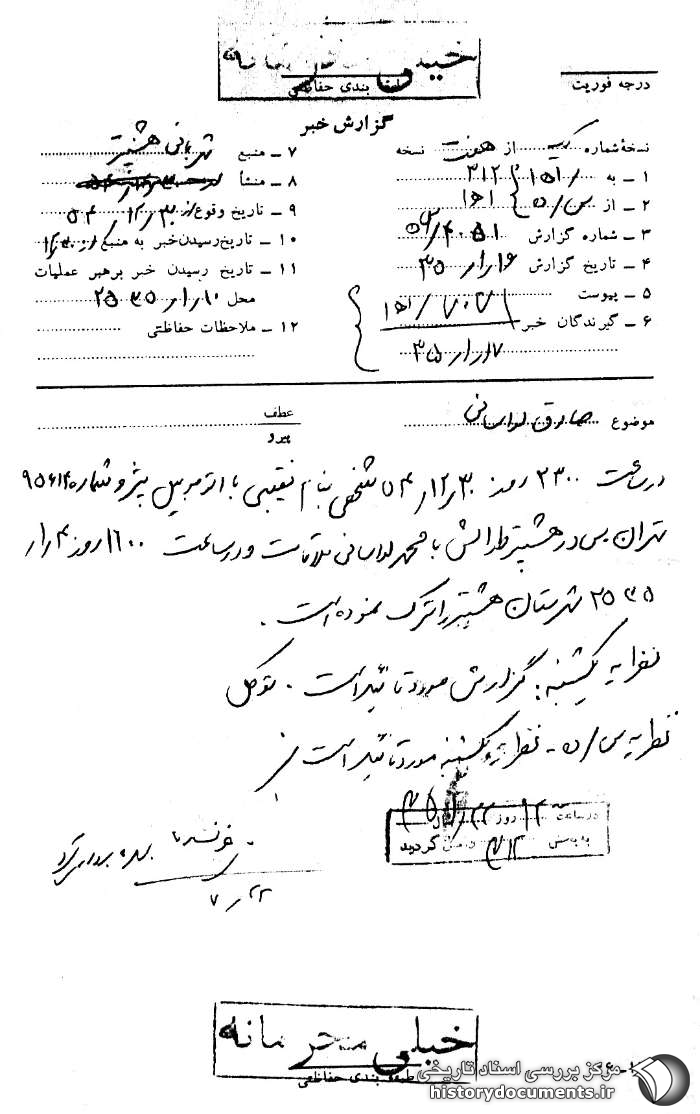 خیلی محرمانه
طبقه بندی حفاظتی
درجه فوریت
گزارش خبر
نسخهٔ شماره یک از هفت نسخه
۱ ـ به ۳۱۲
۲ ـ از س/ن ۱۵۱
۳ ـ شماره گزارش
۴ ـ تاریخ گزارش ۱۶ر۱ر۳۵
۵ ـ پیوست
۶ ـ گیرندگان خبر
۱۷ر۱ر۳۵
۷ ـ منبع شهربانی هشتپر
۸ ـ منشأ
۹ ـ تاریخ وقوع از ۳۰ر۱۲ر۵۴
۱۰ ـ تاریخ رسیدن خبر به منبع
۱۱ ـ تاریخ رسیدن خبر برهبر عملیات
محل ۱۰ر۱ر۲۵۳۵
۱۲ ـ ملاحظات حفاظتی
موضوع صادق لواسانی
عطف
پیرو
در ساعت ۲۳۰۰ روز ۳۰ر۱۲ر۵۴ شخصی بنام نقیبی با اتومبیل پژو شماره ۹۵۶۱۴
تهران س در هشتپر طوالش با محمد لواسانی ملاقات و در ساعت ۱۶۰۰ روز ۴ر۱ر
۲۵۳۵ شهرستان هشتپر را ترک نموده است.
نظریه یکشنبه: گزارش مورد تائید است. توکل
نظریه س/ن ـ نظریه یکشنبه مورد تائید است
در ساعت روز
به بخش ۳۱۲ گردید
۲۲ر۷
خیلی محرمانه
طبقه بندی حفاظتی
مرکز بررسی اسناد تاریخی
historydocuments.ir